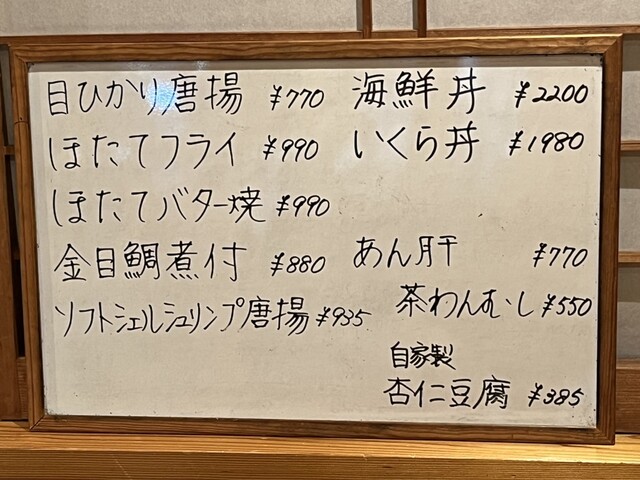 目ひかり唐揚 ¥770
ほたてフライ ¥990
ほたてバター焼 ¥990
金目鯛煮付 ¥880
ソフトシェルシュリンプ唐揚 ¥935
海鮮丼 ¥2200
いくら丼 ¥1980
あん肝 ¥770
茶わんむし ¥550
自家製
杏仁豆腐 ¥385